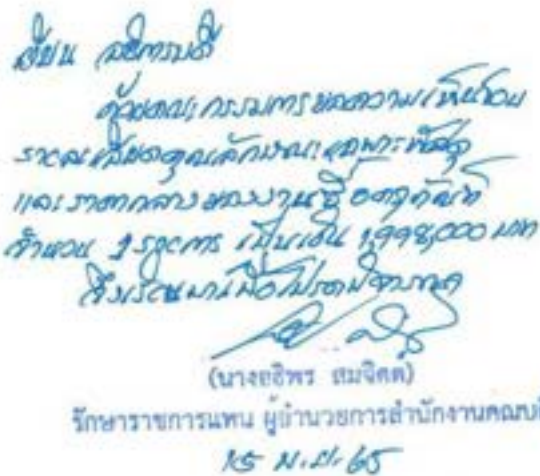 เรียน อธิการบดี
ด้วยคณะกรรมการขอความเห็นชอบ
รายละเอียดคุณลักษณะเฉพาะพัสดุ
และราคากลางของงานซื้อครุภัณฑ์
จำนวน 2 รายการ เป็นเงิน 1,998,000 บาท
จึงเรียนมาเพื่อโปรดพิจารณา
(นางอธิพร สมจิตต์)
รักษาราชการแทน ผู้อำนวยการสำนักงานคณบดี
15 พ.ย. 65